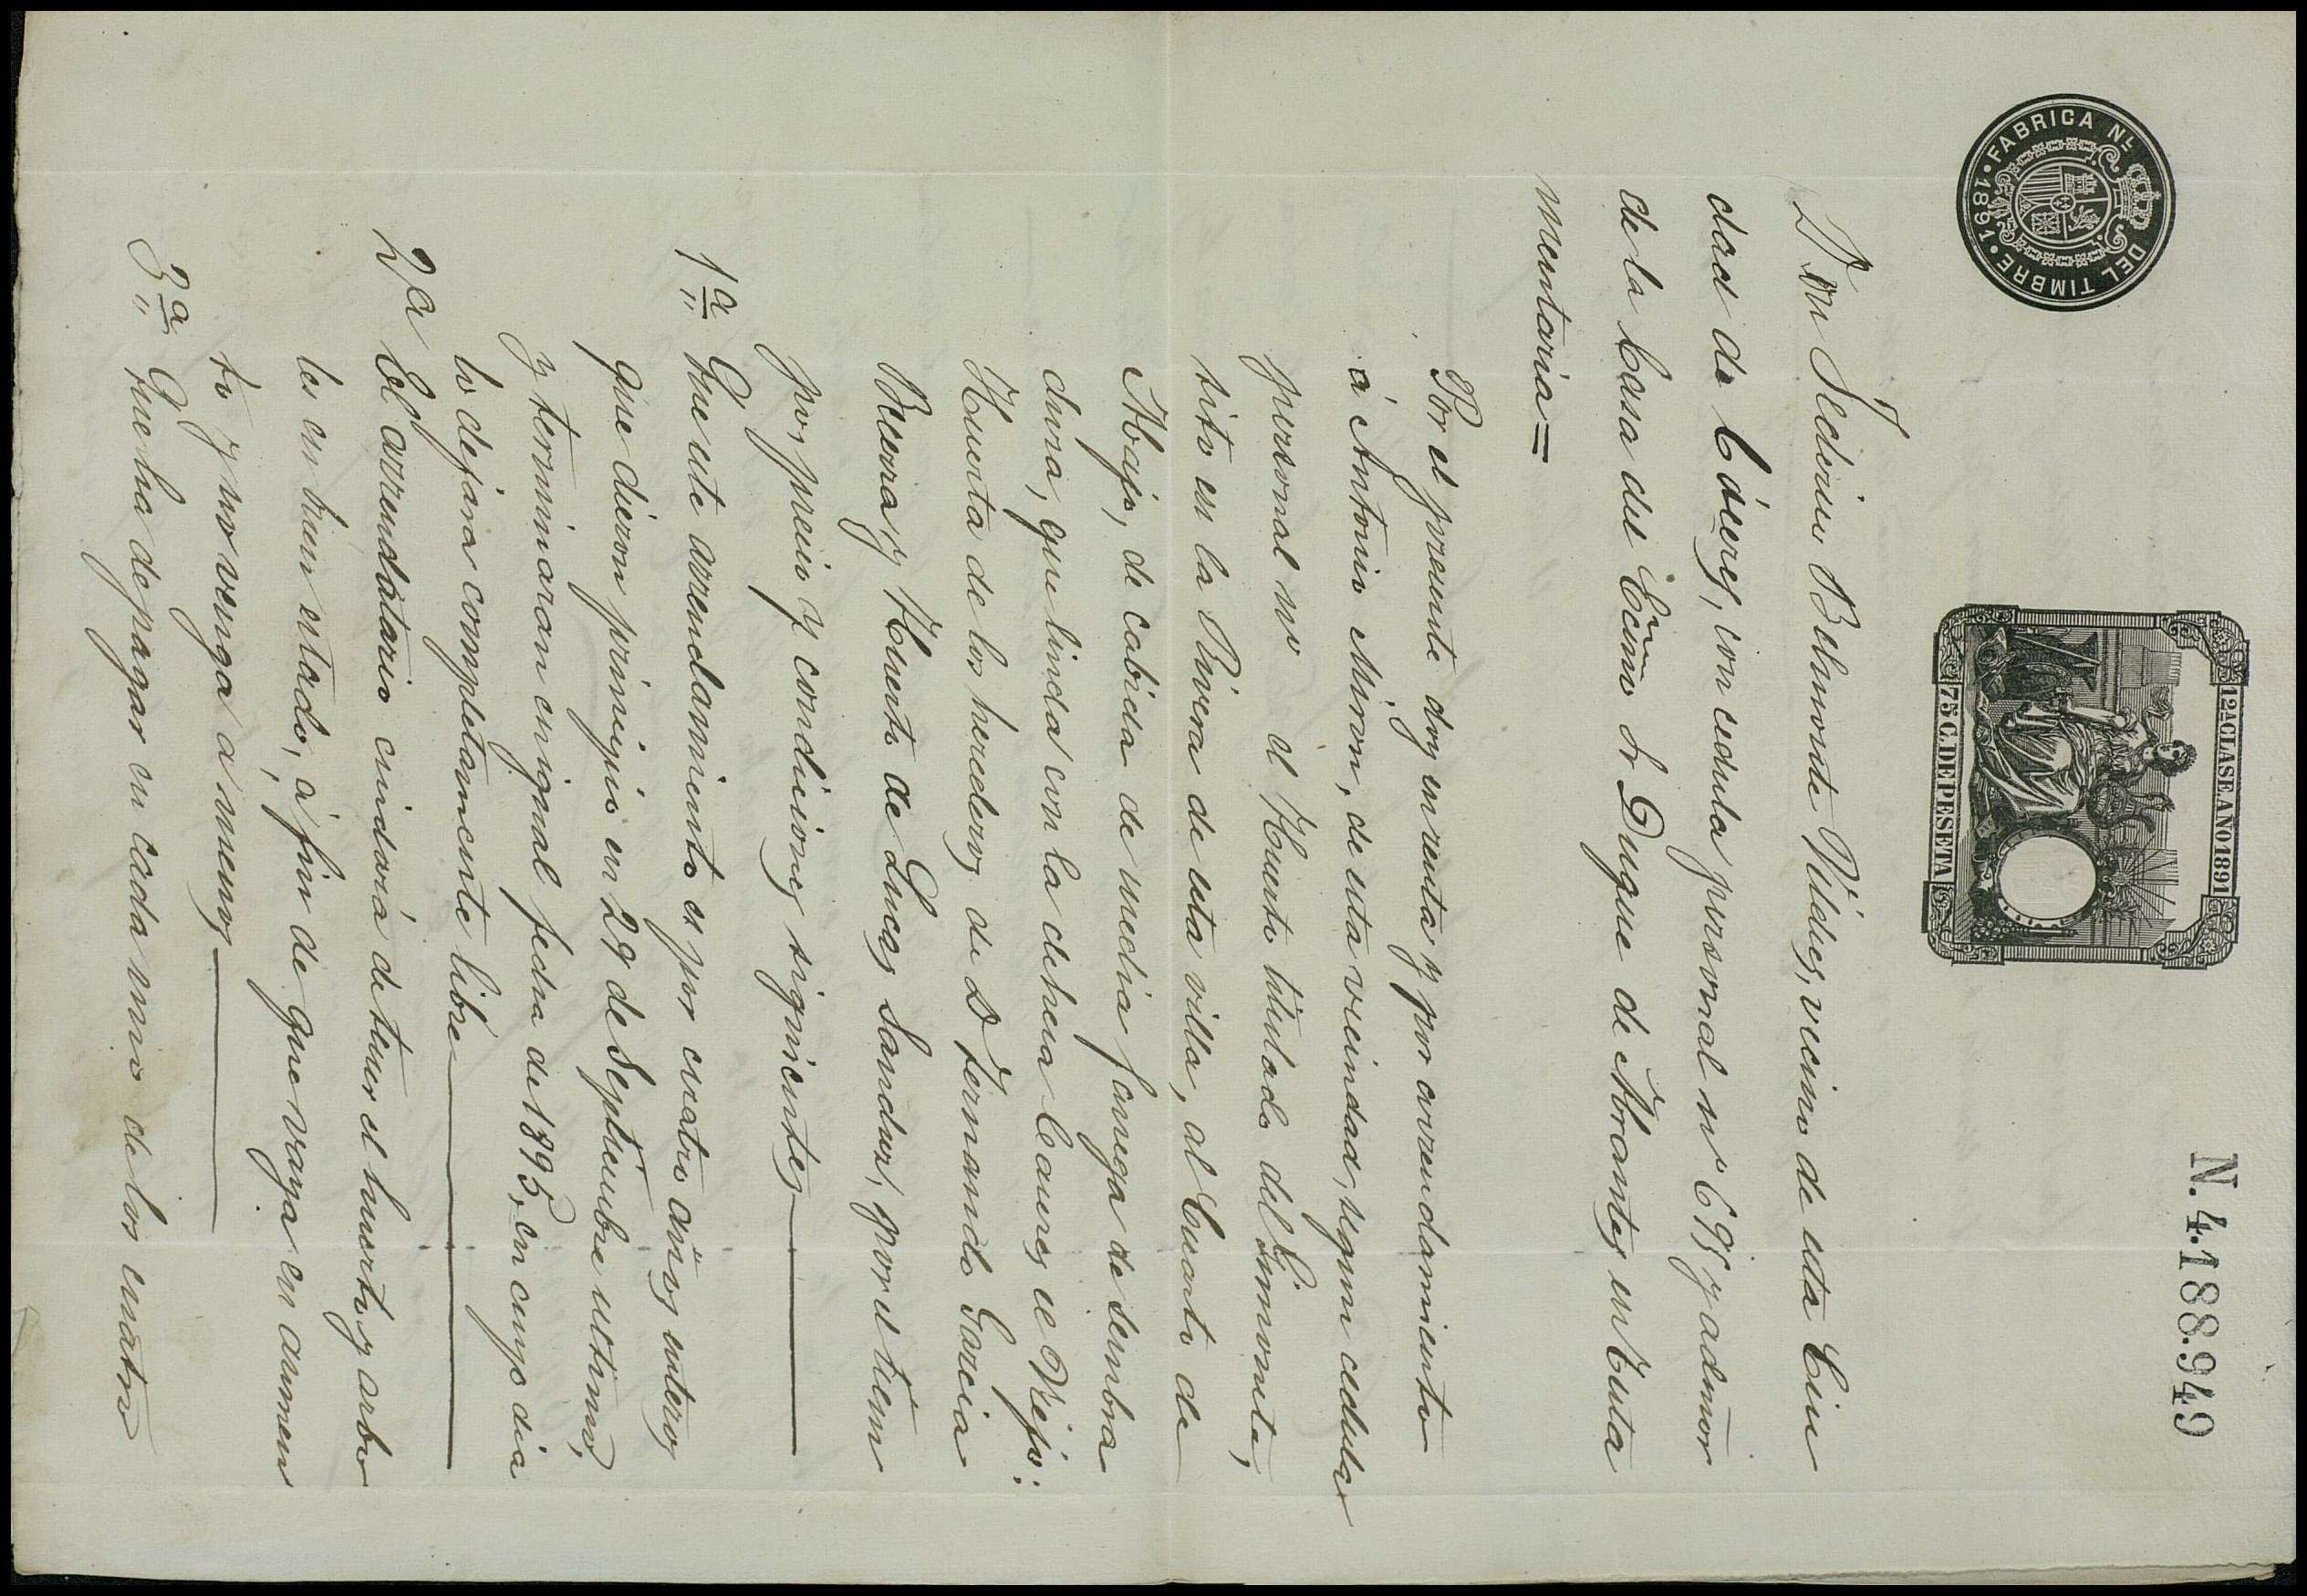 FABRICA Nᴸ DEL TIMBRE
1891
12ª CLASE. AÑO 1891
75 C. DE PESETA
N. 4.188.949
Don Federico Belmonte Vildes, vecino de esta Ciu
dad de Cáceres, con cedula personal nº 695 y admor
de la Casa del Ecmo Sr Duque de Abrantes en Testa
mentaria=
Por el presente doy en renta y por arrendamiento
á Antonio Miron, de esta vecindad, segun cedula
personal nº el Huerto titulado del Limonete,
sito en la Rivera de esta villa, al Cuarto de
Abajo, de cabida de media fanega de sembra
dura, que linda con la dehesa
Huerta de los herederos de D Fernando Garcia
Becerra y Huerto de Lucas Sanduz, por el tiem
po, precio y condiciones siguientes
1ª Que este arrendamiento es por cuatro años enteros
que dieron principio en 29 de Septiembre ultimo,
y terminaran en igual fecha de 1895, en cuyo dia
lo dejara completamente libre
2ª El arrendatario cuidará de tener el huerto y arbo
les en buen estado, á fin de que vaya en aumen
to y no venga a menos
3ª Que ha de pagar en cada uno de los cuatro